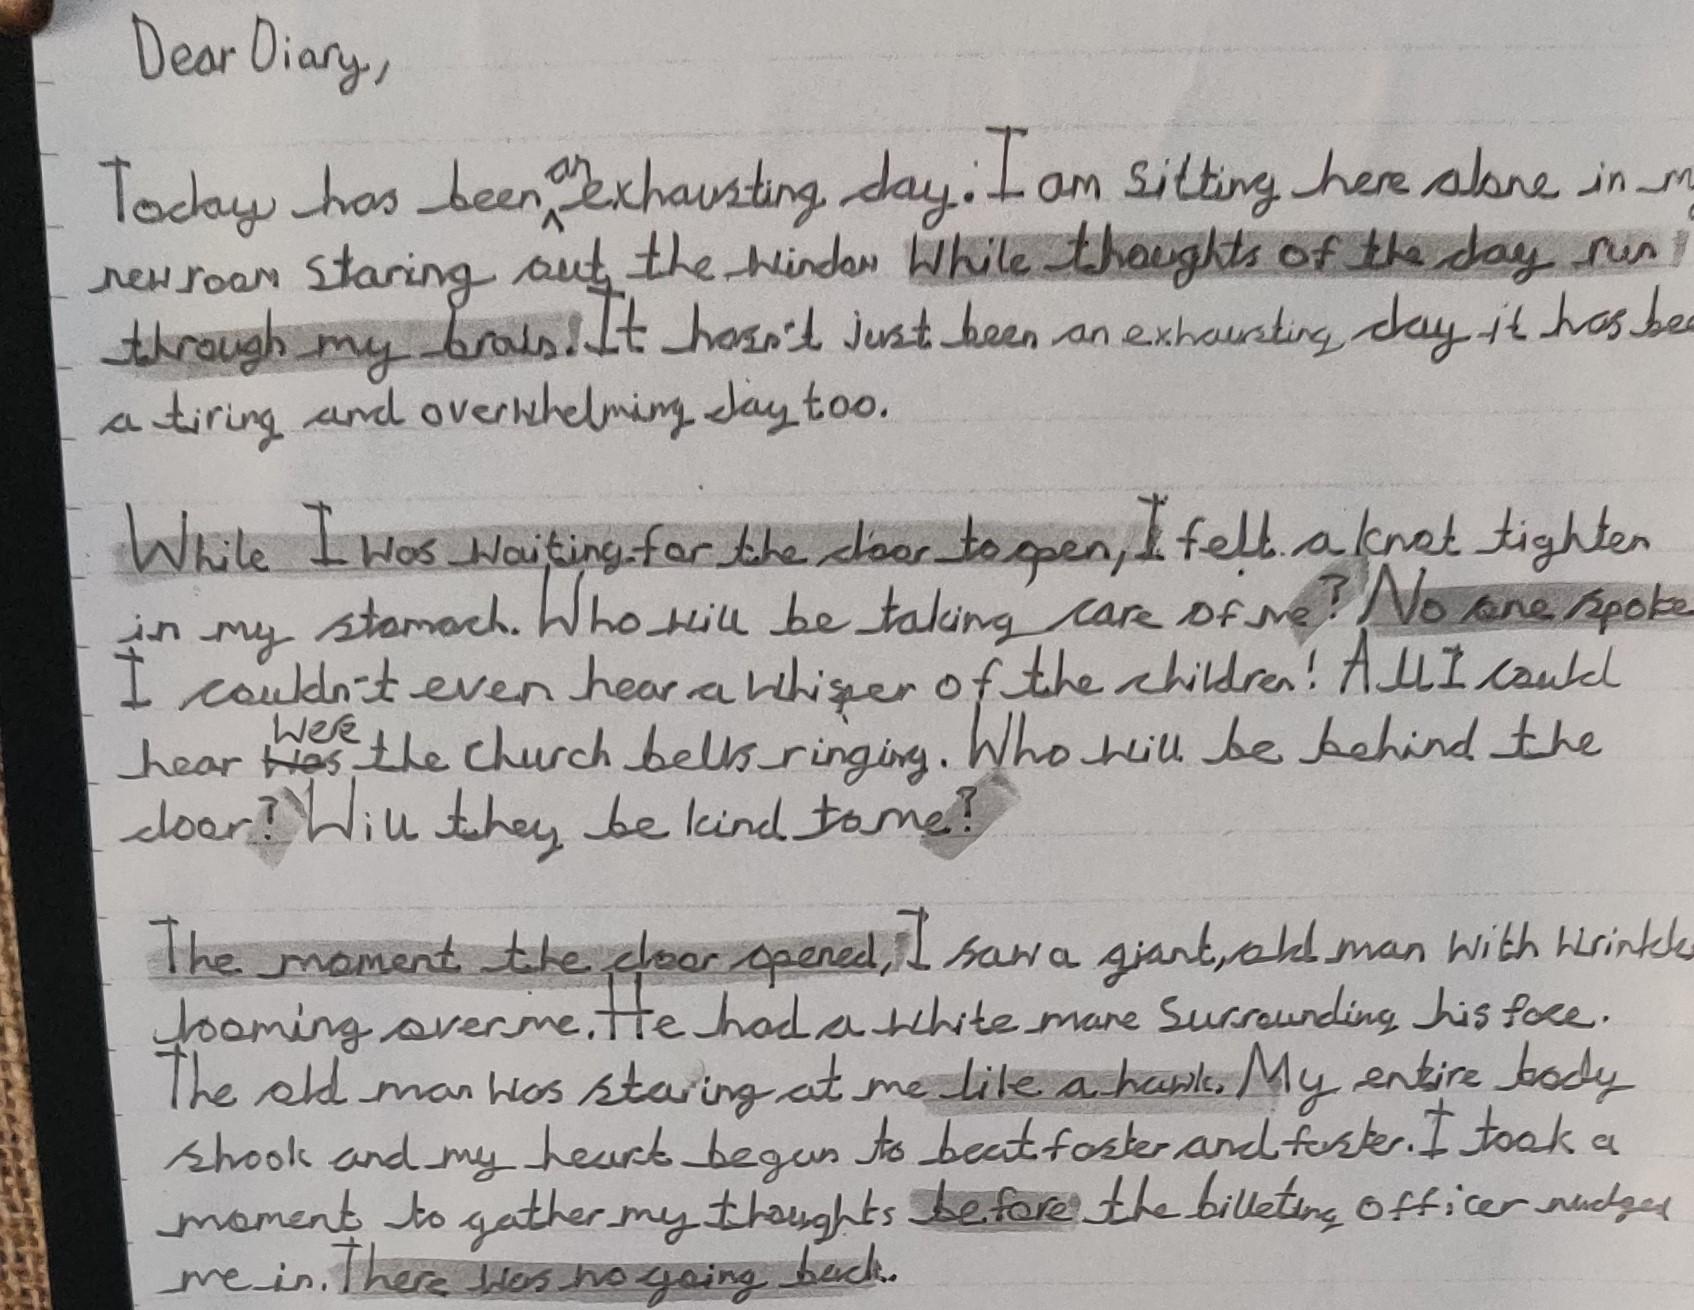 Dear Diary,
Today has been an exhausting day. I am sitting here alone in
new room staring out the window while thoughts of the day run
through my brain. It hasn't just been an exhausting day it has
a tiring and overwhelming day too.
While I was waiting for the door to open, I felt a knot tighten
in my stomach. Who will be taking care of me? No one spoke
I couldn't even hear a whisper of the children! All I could
hear were the church bells ringing. Who will be behind the
door? Will they be kind to me?
The moment the door opened, I saw a giant, old man with
looming over me. He had a white mane surrounding his face.
The old man was staring at me like a hawk. My entire body
shook and my heart began to beat faster and faster. I took a
moment to gather my thoughts before the billeting officer nudged
me in. There was no going back.